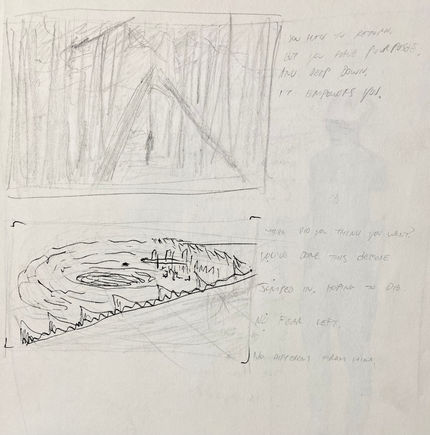 YOU HATE TO RETURN,
BUT YOU HAVE PURPOSE.
AND DEEP DOWN,
IT EMPOWERS YOU.
DID YOU THINK YOU WANT?
YOU'VE DONE THIS BEFORE
JUMPED IN, HOPING TO DIE.
NO FEAR LEFT.
NO DIFFERENT FROM HIM.